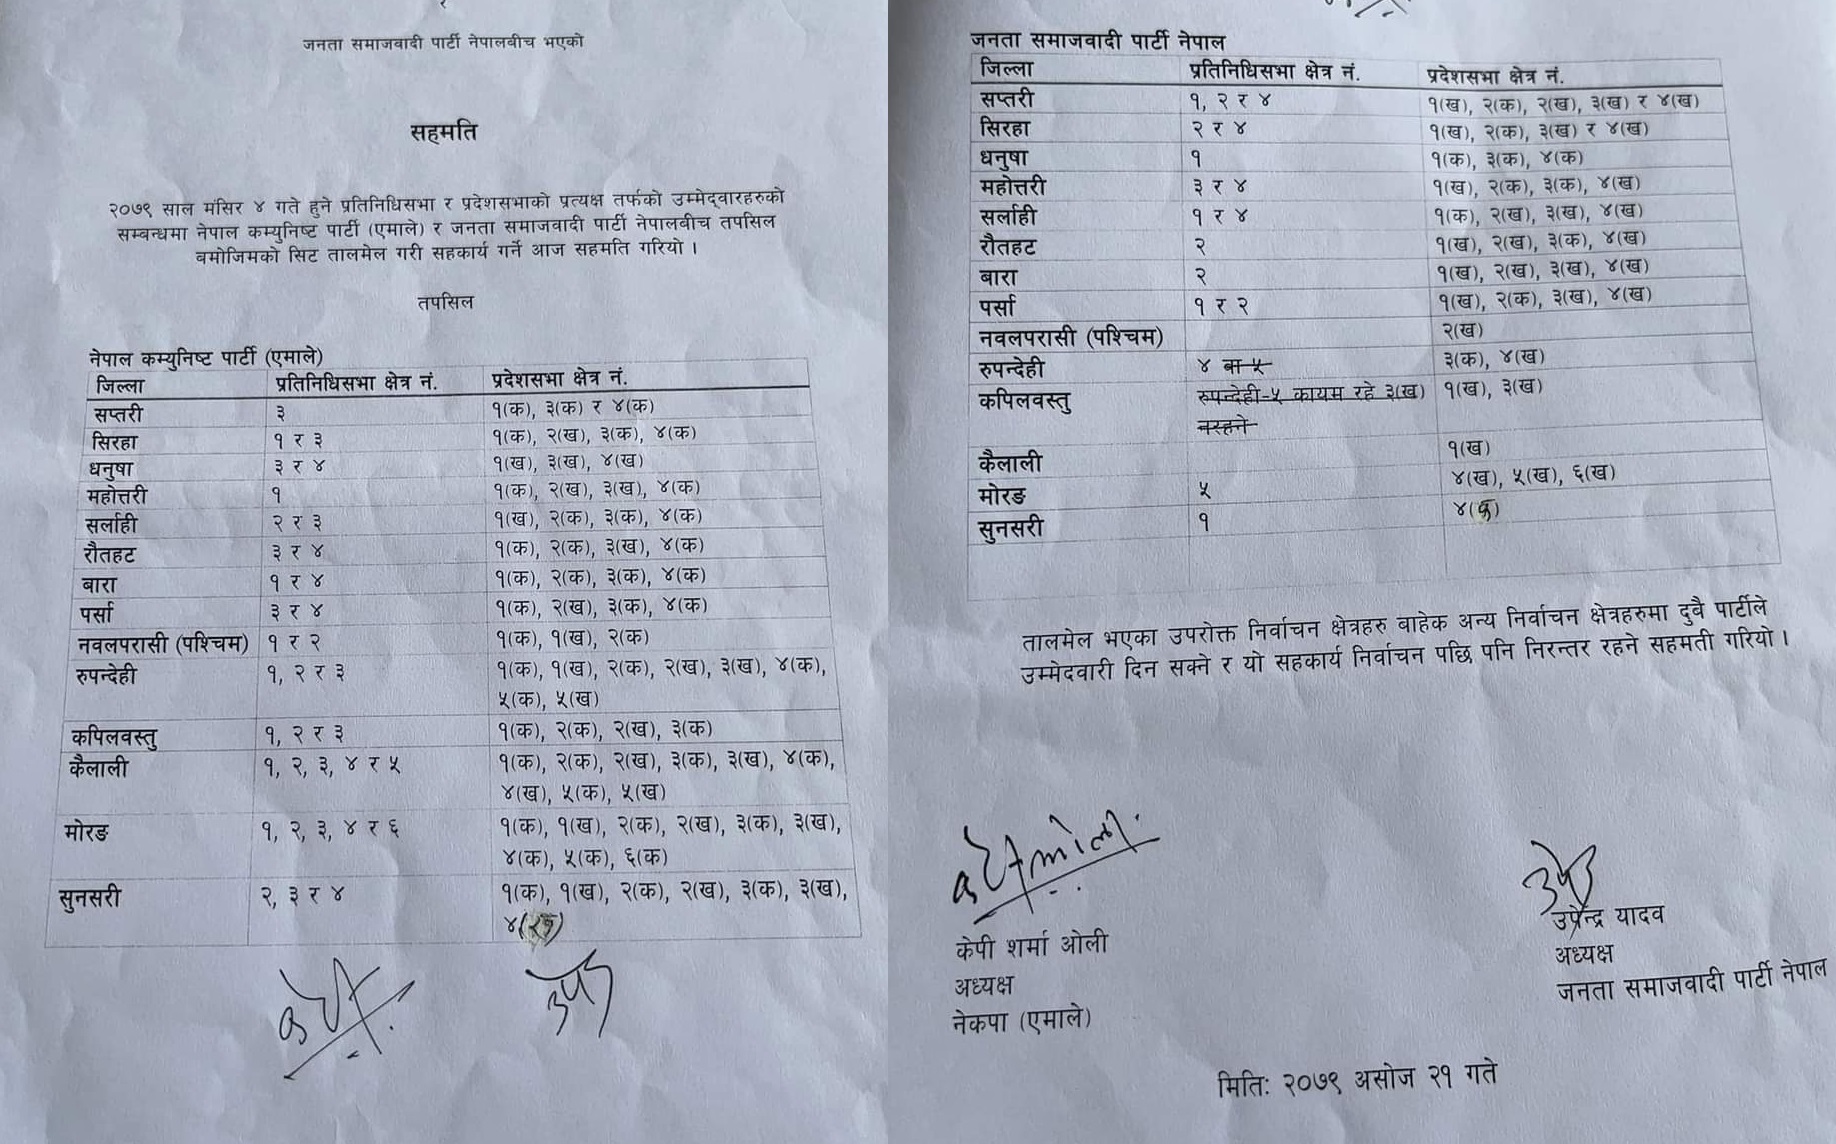 जनता समाजवादी पार्टी नेपालबीच भएको
सहमति
२०७९ साल मंसिर ४ गते हुने प्रतिनिधिसभा र प्रदेशसभाको प्रत्यक्ष तर्फको उम्मेद्वारहरुको
सम्बन्धमा नेपाल कम्युनिष्ट पार्टी (एमाले) र जनता समाजवादी पार्टी नेपालबीच तपसिल
बमोजिमको सिट तालमेल गरी सहकार्य गर्ने आज सहमति गरियो ।
तपसिल
नेपाल कम्युनिष्ट पार्टी (एमाले)
जिल्ला प्रतिनिधिसभा क्षेत्र नं. प्रदेशसभा क्षेत्र नं.
सप्तरी ३ १(क), ३(क) र ४(क)
सिरहा १ र ३ १(क), २(ख), ३(क), ४(क)
धनुषा ३ र ४ १(ख), ३(ख), ४(ख)
महोत्तरी १ १(क), २(ख), ३(ख), ४(क)
सर्लाही २ र ३ १(ख), २(क), ३(क), ४(क)
रौतहट ३ र ४ १(क), २(क), ३(ख), ४(क)
बारा १ र ४ १(क), २(क), ३(क), ४(क)
पर्सा ३ र ४ १(क), २(ख), ३(क), ४(क)
नवलपरासी (पश्चिम) १ र २ १(क), १(ख), २(क)
रुपन्देही १, २ र ३ १(क), १(ख), २(क), २(ख), ३(ख), ४(क),
५(क), ५(ख)
कपिलवस्तु १, २ र ३ १(क), २(क), २(ख), ३(क)
कैलाली १, २, ३, ४ र ५ १(क), २(क), २(ख), ३(क), ३(ख), ४(क),
४(ख), ५(क), ५(ख)
मोरङ १, २, ३, ४ र ६ १(क), १(ख), २(क), २(ख), ३(क), ३(ख),
४(क), ५(क), ६(क)
सुनसरी २, ३ र ४ १(क), १(ख), २(क), २(ख), ३(क), ३(ख),
४(ख)
जनता समाजवादी पार्टी नेपाल
जिल्ला प्रतिनिधिसभा क्षेत्र नं. प्रदेशसभा क्षेत्र नं.
सप्तरी १, २ र ४ १(ख), २(क), २(ख), ३(ख) र ४(ख)
सिरहा २ र ४ १(ख), २(क), ३(ख) र ४(ख)
धनुषा १ १(क), ३(क), ४(क)
महोत्तरी ३ र ४ १(ख), २(क), ३(क), ४(ख)
सर्लाही १ र ४ १(क), २(ख), ३(ख), ४(ख)
रौतहट २ १(ख), २(ख), ३(क), ४(ख)
बारा २ १(ख), २(ख), ३(ख), ४(ख)
पर्सा १ र २ १(ख), २(क), ३(ख), ४(ख)
नवलपरासी (पश्चिम) २(ख)
रुपन्देही ४ बा ५ ३(क), ४(ख)
कपिलवस्तु रुपन्देही-५ कायम रहे ३(ख) १(ख), ३(ख)
नरहने
कैलाली १(ख)
मोरङ ५ ४(ख), ५(ख), ६(ख)
सुनसरी १ ४(क)
तालमेल भएका उपरोक्त निर्वाचन क्षेत्रहरु बाहेक अन्य निर्वाचन क्षेत्रहरुमा दुबै पार्टीले
उम्मेदवारी दिन सक्ने र यो सहकार्य निर्वाचन पछि पनि निरन्तर रहने सहमती गरियो ।
केपी शर्मा ओली
अध्यक्ष
नेकपा (एमाले)
उपेन्द्र यादव
अध्यक्ष
जनता समाजवादी पार्टी नेपाल
मिति: २०७९ असोज २१ गते